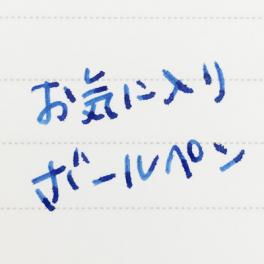 お気に入り
ボールペン